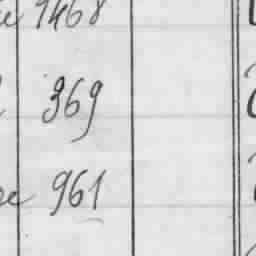 1468
369
961